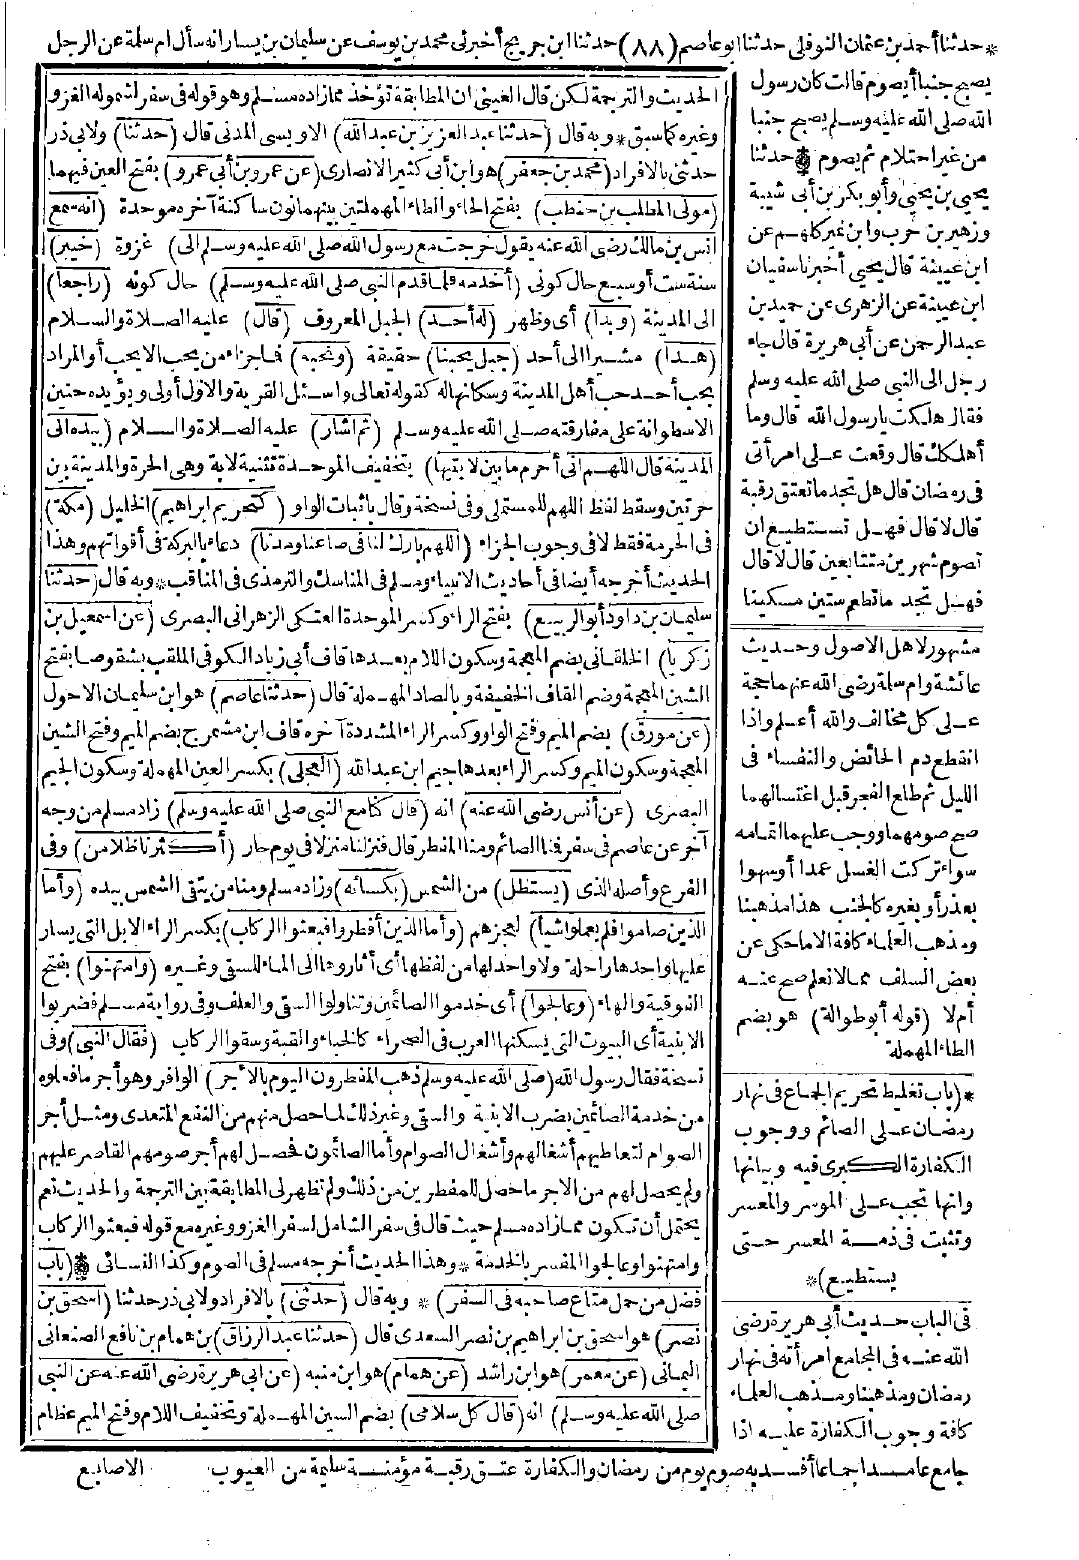 * حدثنا أحمد بن عثمان النوفلى حدثنا ابو عاصم (٨٨) حدثنا ابن جريج أخبرنى محمد بن يوسف عن سليمان بن يسار انه سأل ام سلمة عن الرجل
يصبح جنبا أيصوم قالت كان رسول
الله صلى الله عليه وسلم يصبح جنبا
من غير احتلام ثم يصوم * حدثنا
يحيى بن يحيى وأبو بكر بن أبى شيبة
وزهير بن حرب وابن نمير كلهم عن
ابن عيينة قال يحيى أخبرنا سفيان
ابن عيينة عن الزهرى عن حميد بن
عبد الرحمن عن أبى هريرة قال جاء
رجل الى النبى صلى الله عليه وسلم
فقال هلكت يا رسول الله قال وما
أهلكك قال وقعت على امرأتى
فى رمضان قال هل تجد ما تعتق رقبة
قال لا قال فهل تستطيع ان
تصوم شهرين متتابعين قال لا قال
فهل تجد ما تطعم ستين مسكينا
مشهور لاهل الاصول وحديث
عائشة وام سلمة رضى الله عنهما حجة
على كل مخالف والله أعلم واذا
انقطع دم الحائض والنفساء فى
الليل ثم طلع الفجر قبل اغتسالهما
صح صومهما ووجب عليهما اتمامه
سواء تركت الغسل عمدا أو سهوا
بعذر أو بغيره كالجنب هذا مذهبنا
ومذهب العلماء كافة الا ما حكى عن
بعض السلف مما لا نعلم صح عنه
أم لا (قوله أبو طوالة) هو بضم
الطاء المهملة
*(باب تغليظ تحريم الجماع فى نهار
رمضان على الصائم ووجوب
الكفارة الكبرى فيه وبيانها
وانها تجب على الموسر والمعسر
وتثبت فى ذمة المعسر حتى
يستطيع)*
فى الباب حديث أبى هريرة رضى
الله عنه فى المجامع امرأته فى نهار
رمضان ومذهبنا ومذهب العلماء
كافة وجوب الكفارة عليه اذا
جامع عامدا جماعا أفسد به صوم يوم من رمضان والكفارة عتق رقبة مؤمنة سليمة من العيوب
الحديث والترجمة لكن قال العينى ان المطابقة تؤخذ مما زاده مسلم وهو قوله فى سفر لشموله الغزو
وغيره كما سبق * وبه قال (حدثنا عبد العزيز بن عبد الله) الاويسى المدنى قال (حدثنا) ولابى ذر
حدثنى بالافراد (محمد بن جعفر) هو ابن أبى كثير الانصارى (عن عمرو بن أبى عمرو) بفتح العين فيهما
(مولى المطلب بن حنطب) بفتح الحاء والطاء المهملتين بينهما نون ساكنة آخره موحدة (انه سمع
انس بن مالك رضى الله عنه يقول خرجت مع رسول الله صلى الله عليه وسلم الى) غزوة (خيبر)
سنة ست أو سبع حال كونى (أخدمه فلما قدم النبى صلى الله عليه وسلم) حال كونه (راجعا)
الى المدينة (وبدا) أى وظهر (له أحد) الجبل المعروف (قال) عليه الصلاة والسلام
(هذا) مشيرا الى أحد (جبل يحبنا) حقيقة (ونحبه) فما جزاء من يحب الا يحب أو المراد
يحب أحد حب أهل المدينة وسكانها له كقوله تعالى واسئل القرية والاول أولى ويؤيده حنين
الاسطوانة على مفارقته صلى الله عليه وسلم (ثم اشار) عليه الصلاة والسلام (بيده الى
المدينة قال اللهم انى أحرم ما بين لابتيها) بتخفيف الموحدة تثنية لابة وهى الحرة والمدينة بين
حرتين وسقط لفظ اللهم للمستملى وفى نسخة وقال باثبات الواو (كتحريم ابراهيم) الخليل (مكة)
فى الحرمة فقط لا فى وجوب الجزاء (اللهم بارك لنا فى صاعنا ومدنا) دعاء بالبركة فى أقواتهم وهذا
الحديث أخرجه أيضا فى أحاديث الانبياء ومسلم فى المناسك والترمذى فى المناقب * وبه قال (حدثنا
سليمان بن داود أبو الربيع) بفتح الراء وكسر الموحدة العتكى الزهرانى البصرى (عن اسمعيل بن
زكريا) الخلقانى بضم المعجمة وسكون اللام بعدها قاف أبى زياد الكوفى الملقب بشقوصا بفتح
الشين المعجمة وضم القاف الخفيفة وبالصاد المهملة قال (حدثنا عاصم) هو ابن سليمان الاحول
(عن مورق) بضم الميم وفتح الواو وكسر الراء المشددة آخره قاف ابن مشمرج بضم الميم وفتح الشين
المعجمة وسكون الميم وكسر الراء بعدها جيم ابن عبد الله (العجلى) بكسر العين المهملة وسكون الجيم
البصرى (عن أنس رضى الله عنه) انه (قال كنا مع النبى صلى الله عليه وسلم) زاد مسلم من وجه
آخر عن عاصم فى سفر فمنا الصائم ومنا المفطر قال فنزلنا منزلا فى يوم حار (أكثرنا ظلا من) وفى
الفرع وأصله الذى (يستظل) من الشمس (بكسائه) وزاد مسلم ومنا من يتقى الشمس بيده (وأما
الذين صاموا فلم يعملوا شيأ) لعجزهم (وأما الذين أفطروا فبعثوا الركاب) بكسر الراء الابل التى يسار
عليها واحدها راحلة ولا واحد لها من لفظها أى أثاروها الى الماء للسقى وغيره (وامتهنوا) بفتح
الفوقية والهاء (وعالجوا) أى خدموا الصائمين وتناولوا السقى والعلف وفى رواية مسلم فضربوا
الابنية أى البيوت التى يسكنها العرب فى الصحراء كالخباء والقبة وسقوا الركاب (فقال النبى) وفى
نسخة فقال رسول الله (صلى الله عليه وسلم ذهب المفطرون اليوم بالاجر) الوافر وهو أجر ما فعلوه
من خدمة الصائمين بضرب الابنية والسقى وغير ذلك لما حصل منهم من النفع المتعدى ومثل أجر
الصوام لتعاطيهم أشغالهم وأشغال الصوام وأما الصائمون فحصل لهم أجر صومهم القاصر عليهم
ولم يحصل لهم من الاجر ما حصل للمفطرين من ذلك ولم تظهر لى المطابقة بين الترجمة والحديث نعم
يحتمل أن تكون مما زاده مسلم حيث قال فى سفر الشامل لسفر الغزو وغيره مع قوله فبعثوا الركاب
وامتهنوا وعالجوا المفسر بالخدمة * وهذا الحديث أخرجه مسلم فى الصوم وكذا النسائى * (باب
فضل من حمل متاع صاحبه فى السفر) * وبه قال (حدثنى) بالافراد ولابى ذر حدثنا (اسحق بن
نصر) هو اسحق بن ابراهيم بن نصر السعدى قال (حدثنا عبد الرزاق) بن همام بن نافع الصنعانى
اليمانى (عن معمر) هو ابن راشد (عن همام) هو ابن منبه (عن ابى هريرة رضى الله عنه عن النبى
صلى الله عليه وسلم) انه (قال كل سلامى) بضم السين المهملة وتخفيف اللام وفتح الميم عظام
الاصابع